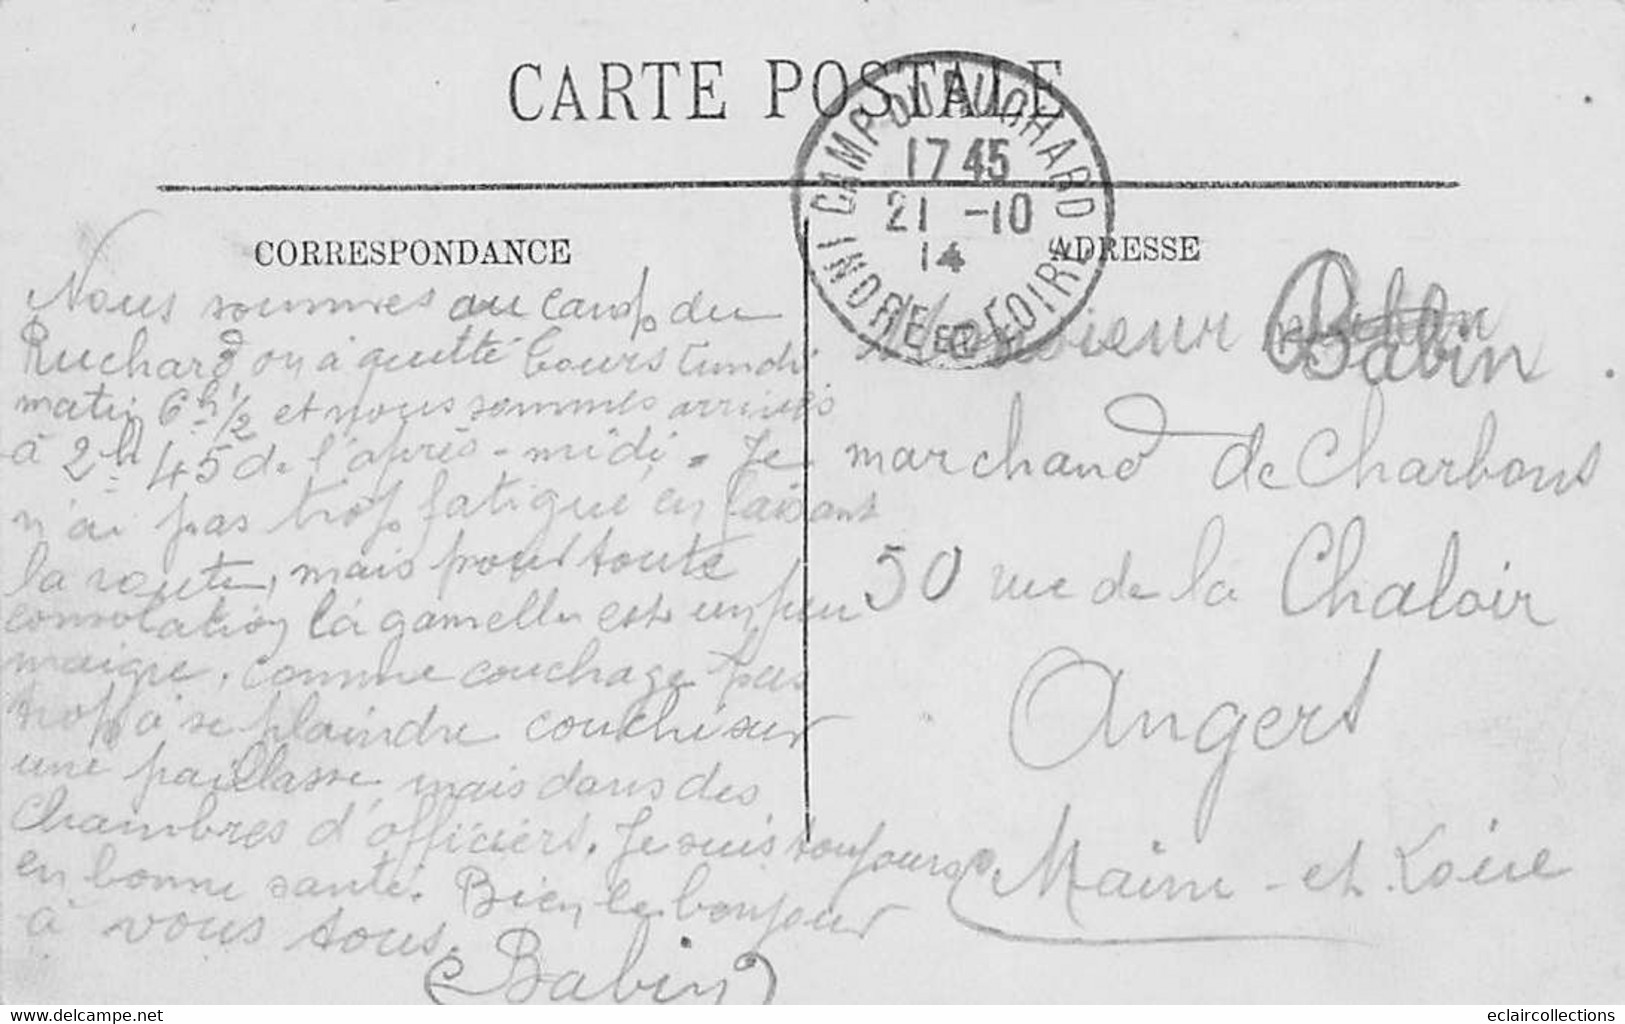 CARTE POSTALE
CAMP DU RUCHARD
17 45
21 -10
14
INDRE ET LOIRE
CORRESPONDANCE
Nous sommes au camp du
Ruchard on a quitté Tours Lundi
matin 6h 1/2 et nous sommes arrivés
à 2h 45 de l'après-midi. Je
n'ai pas trop fatigué en faisant
la route, mais pour toute
consolation la gamelle est un peu
maigre, comme couchage pas
trop à se plaindre couché sur
une paillasse mais dans des
chambres d'officiers. Je suis toujours
en bonne santé. Bien le bonjour
à vous tous.
Babin
ADRESSE
Monsieur Babin
marchand de Charbons
50 rue de la Chaloir
Angers
Maine-et-Loire
delcampe.net
eclaircollections